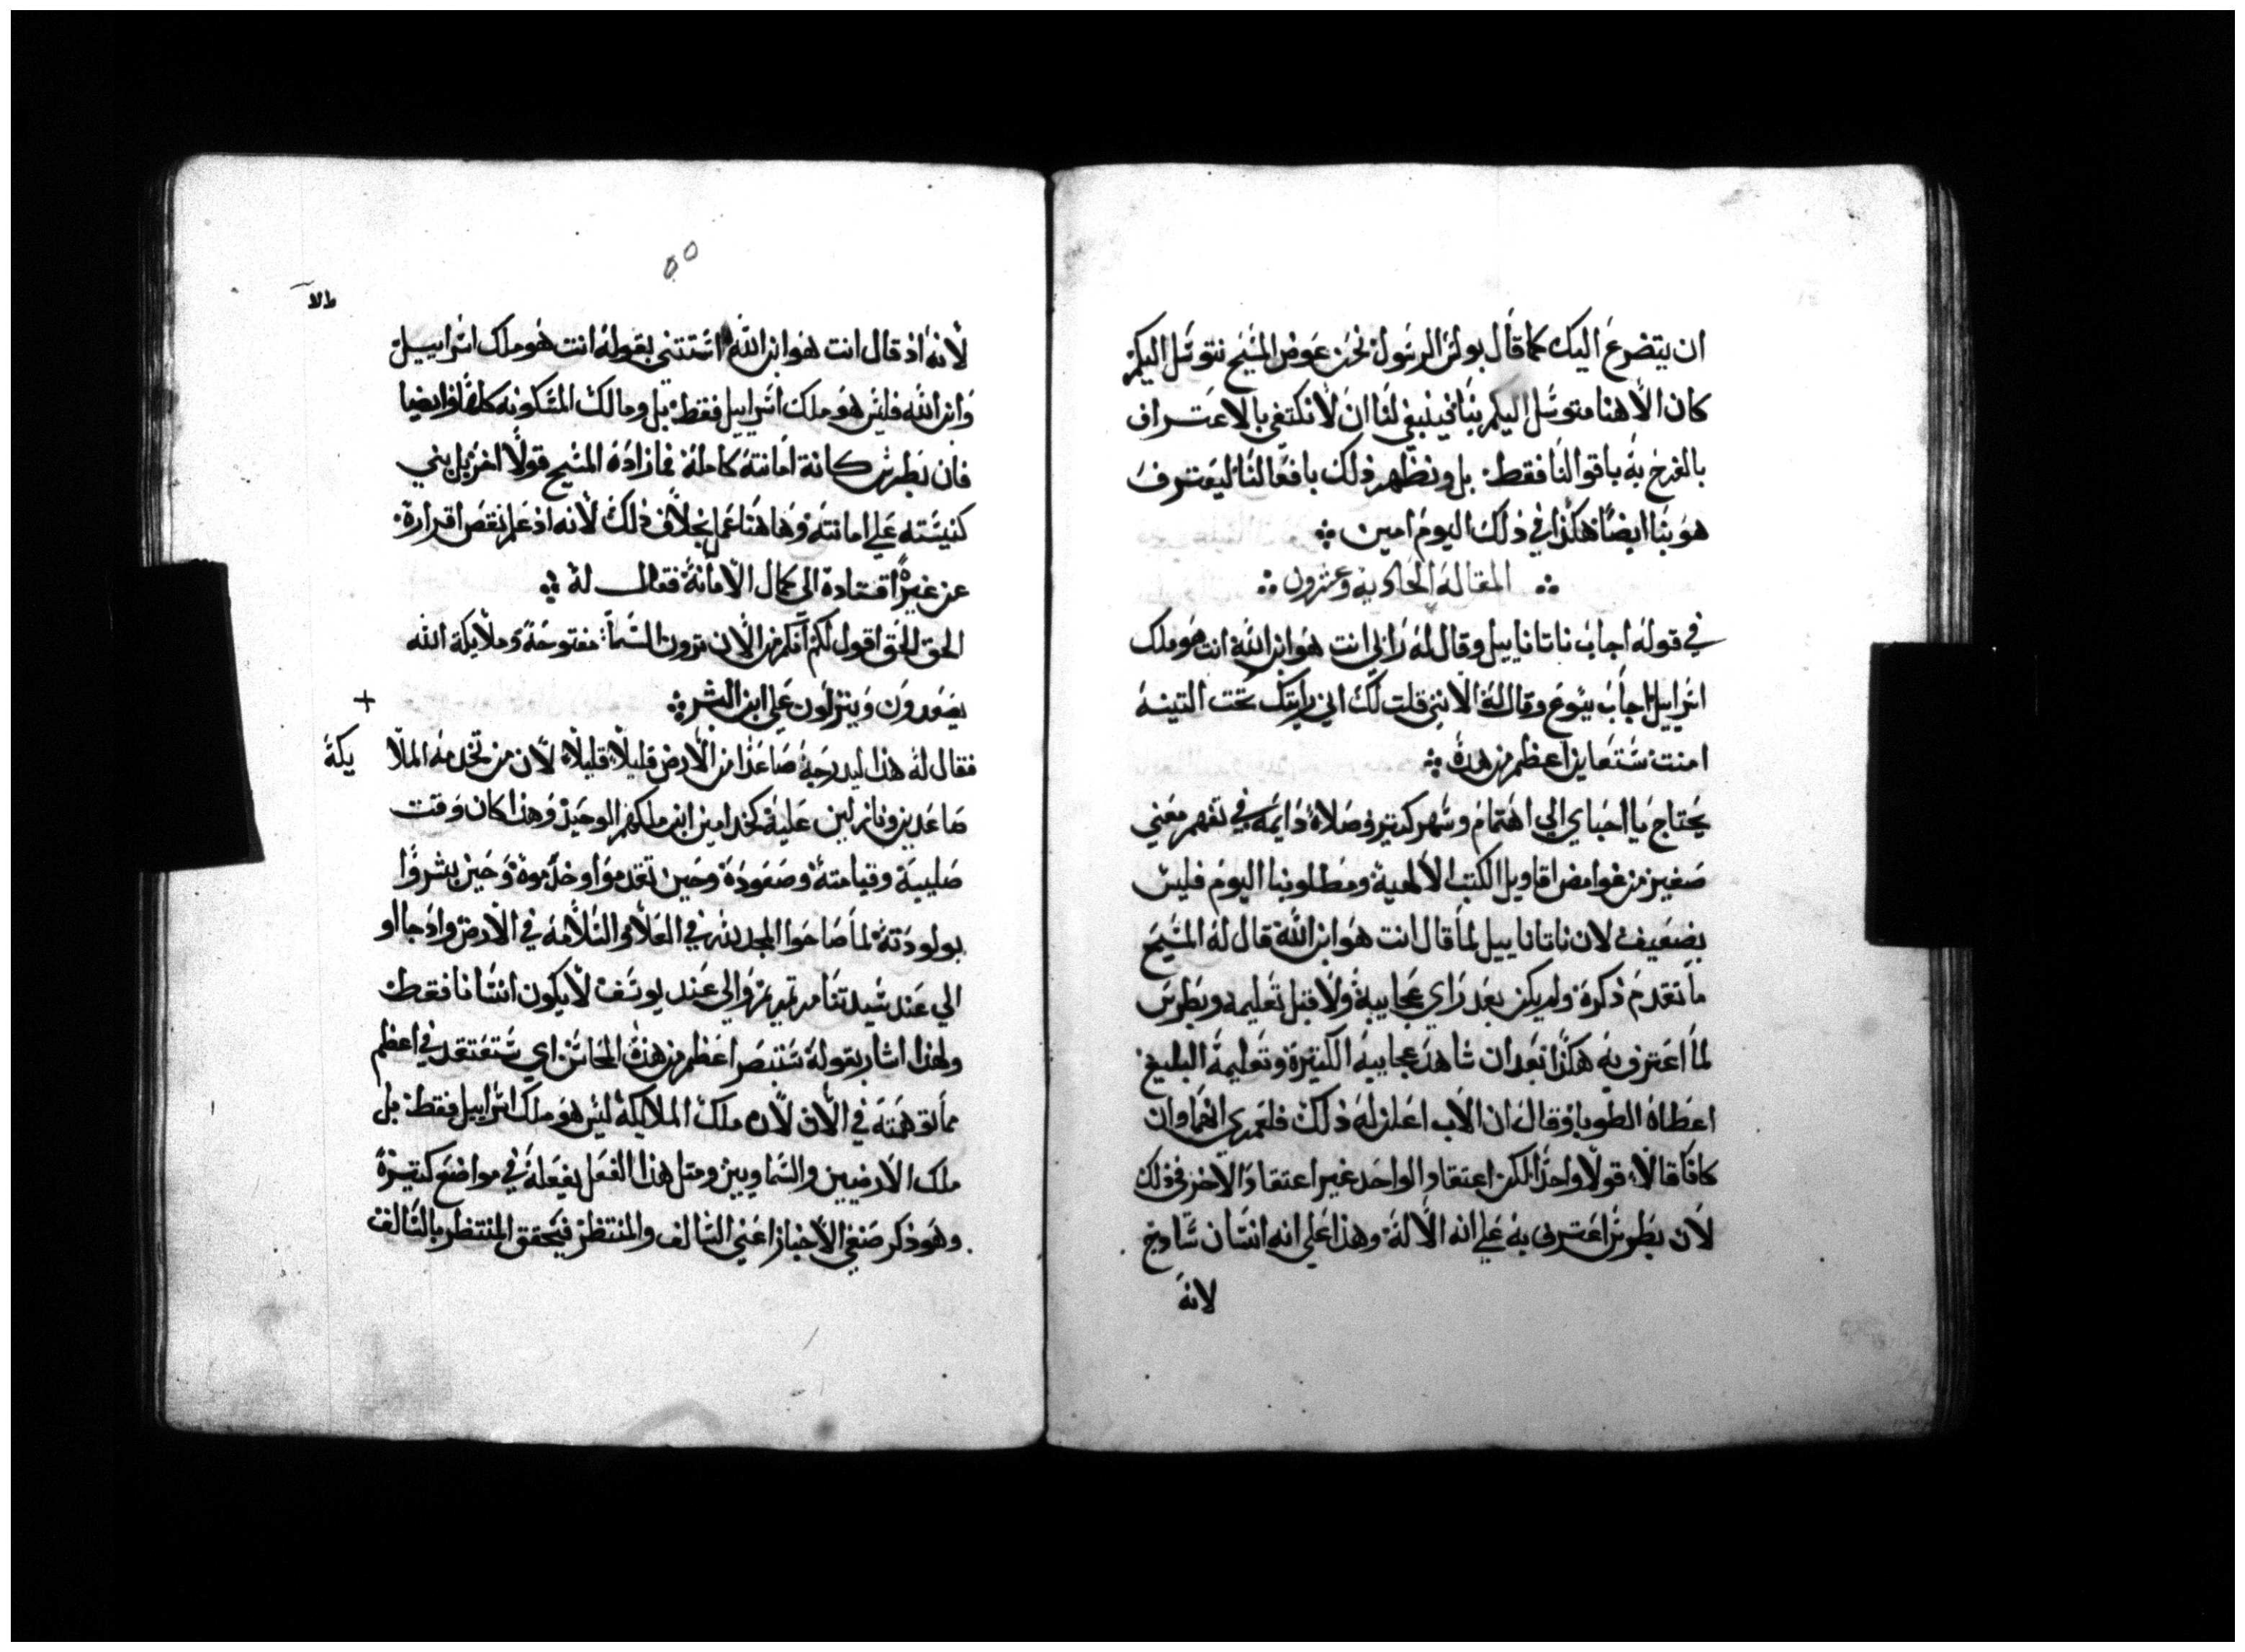 ان يتضرع اليك كما قال بولس الرسول نحن عوض المسيح نتوسل اليكم
كان الاهنا متوسل اليكم بنا فينبغي لنا ان لانكتفي بالاعتراف
باقوالنا فقط بل ونظهر ذلك بافعالنا ليعترف
هو بنا ايضا هكذا في ذلك اليوم امين
المقاله الحاديه وعشرون
في قوله اجاب ناتاناييل وقال له رابي انت هو ابن الله انت هو ملك
اسراييل اجاب يسوع وقال له لانني قلت لك اني رايتك تحت التينه
امنت ستعاين اعظم من هذه
يحتاج يا احباي الي اهتمام وسهر كتير وصلاة دايمه في تفهم معني
صغير من غوامض اقاويل الكتب الالهية ومطلوبنا اليوم فليس
بضعيف لان ناتاناييل لما قال انت هو ابن الله قال له المسيح
ما تقدم ذكره ولم يكن بعد راي عجايبه ولا قبل تعليمه وبطرس
لما اعترف به هكذا بعد ان شاهد عجايبه الكتيرة وتعليمه البليغ
اعطاه الطوبا وقال ان الاب اعلن له ذلك فلعمري انهما وان
كانا قالا قولا واحدا لكن اعتقاد الواحد غير اعتقاد الاخر في ذلك
لان بطرس اعترف به علي انه الاله وهذا علي انه انسان سادج
لانه
٥٥
لانه اذ قال انت هو ابن الله استتني بقوله انت هو ملك اسراييل
وابن الله فليس هو ملك اسراييل فقط بل ومالك المسكونه كلها وايضا
فان بطرس كانة امانته كامله فما زاده المسيح قولا اخر بل بني
كنيسته علي امانته وهاهنا عمل بخلاف ذلك لانه اذ علم نقص اقراره
عن غيره اقتاده الي كمال الامانة فقال له
الحق الحق اقول لكم انكم من الان ترون السما مفتوحة وملايكة الله
يصعدون وينزلون علي ابن البشر
+
فقال له هذا ليدرجه صاعدا من الارض قليلا قليلا لان من تخدمه الملا يكة
صاعدين ونازلين عليه كخدامين ابن ملكهم الوحيد وهذا كان وقت
صليبه وقيامته وصعوده وحين تقدموا وخدموه وحين بشروا
بولودته لما صاحوا المجد لله في العلا والسلامه في الارض واذ جااو
الي عند سيدتنا مرتمريم والي عند يوسف لايكون انسانا فقط
ولهذا اشار بقوله ستبصر اعظم من هذه اي ستعتقد في اعظم
مما توهمته في الان لان ملك الملايكة ليس هو ملك اسراييل فقط بل
ملك الارضيين والسماويين ومتل هذا الفعل يفعله في مواضع كتيرة
وهو ذكر صنفي الاخبار اعني السالف والمنتظر فيحقق المنتظر بالسالف